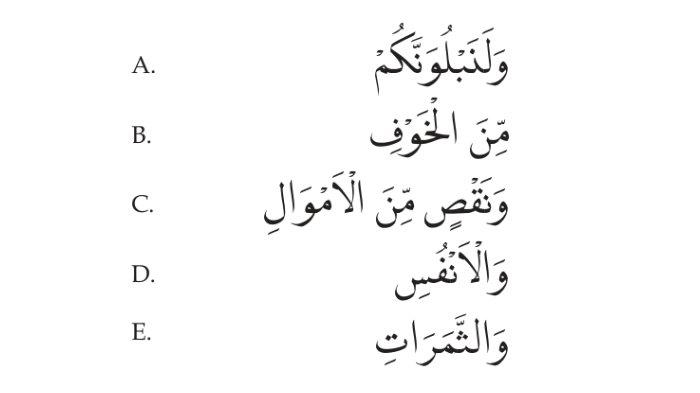 A. وَلَنَبْلُوَنَّكُمْ
B. مِّنَ الْخَوْفِ
C. وَنَقْصٍ مِّنَ الْاَمْوَالِ
D. وَالْاَنْفُسِ
E. وَالثَّمَرَاتِ